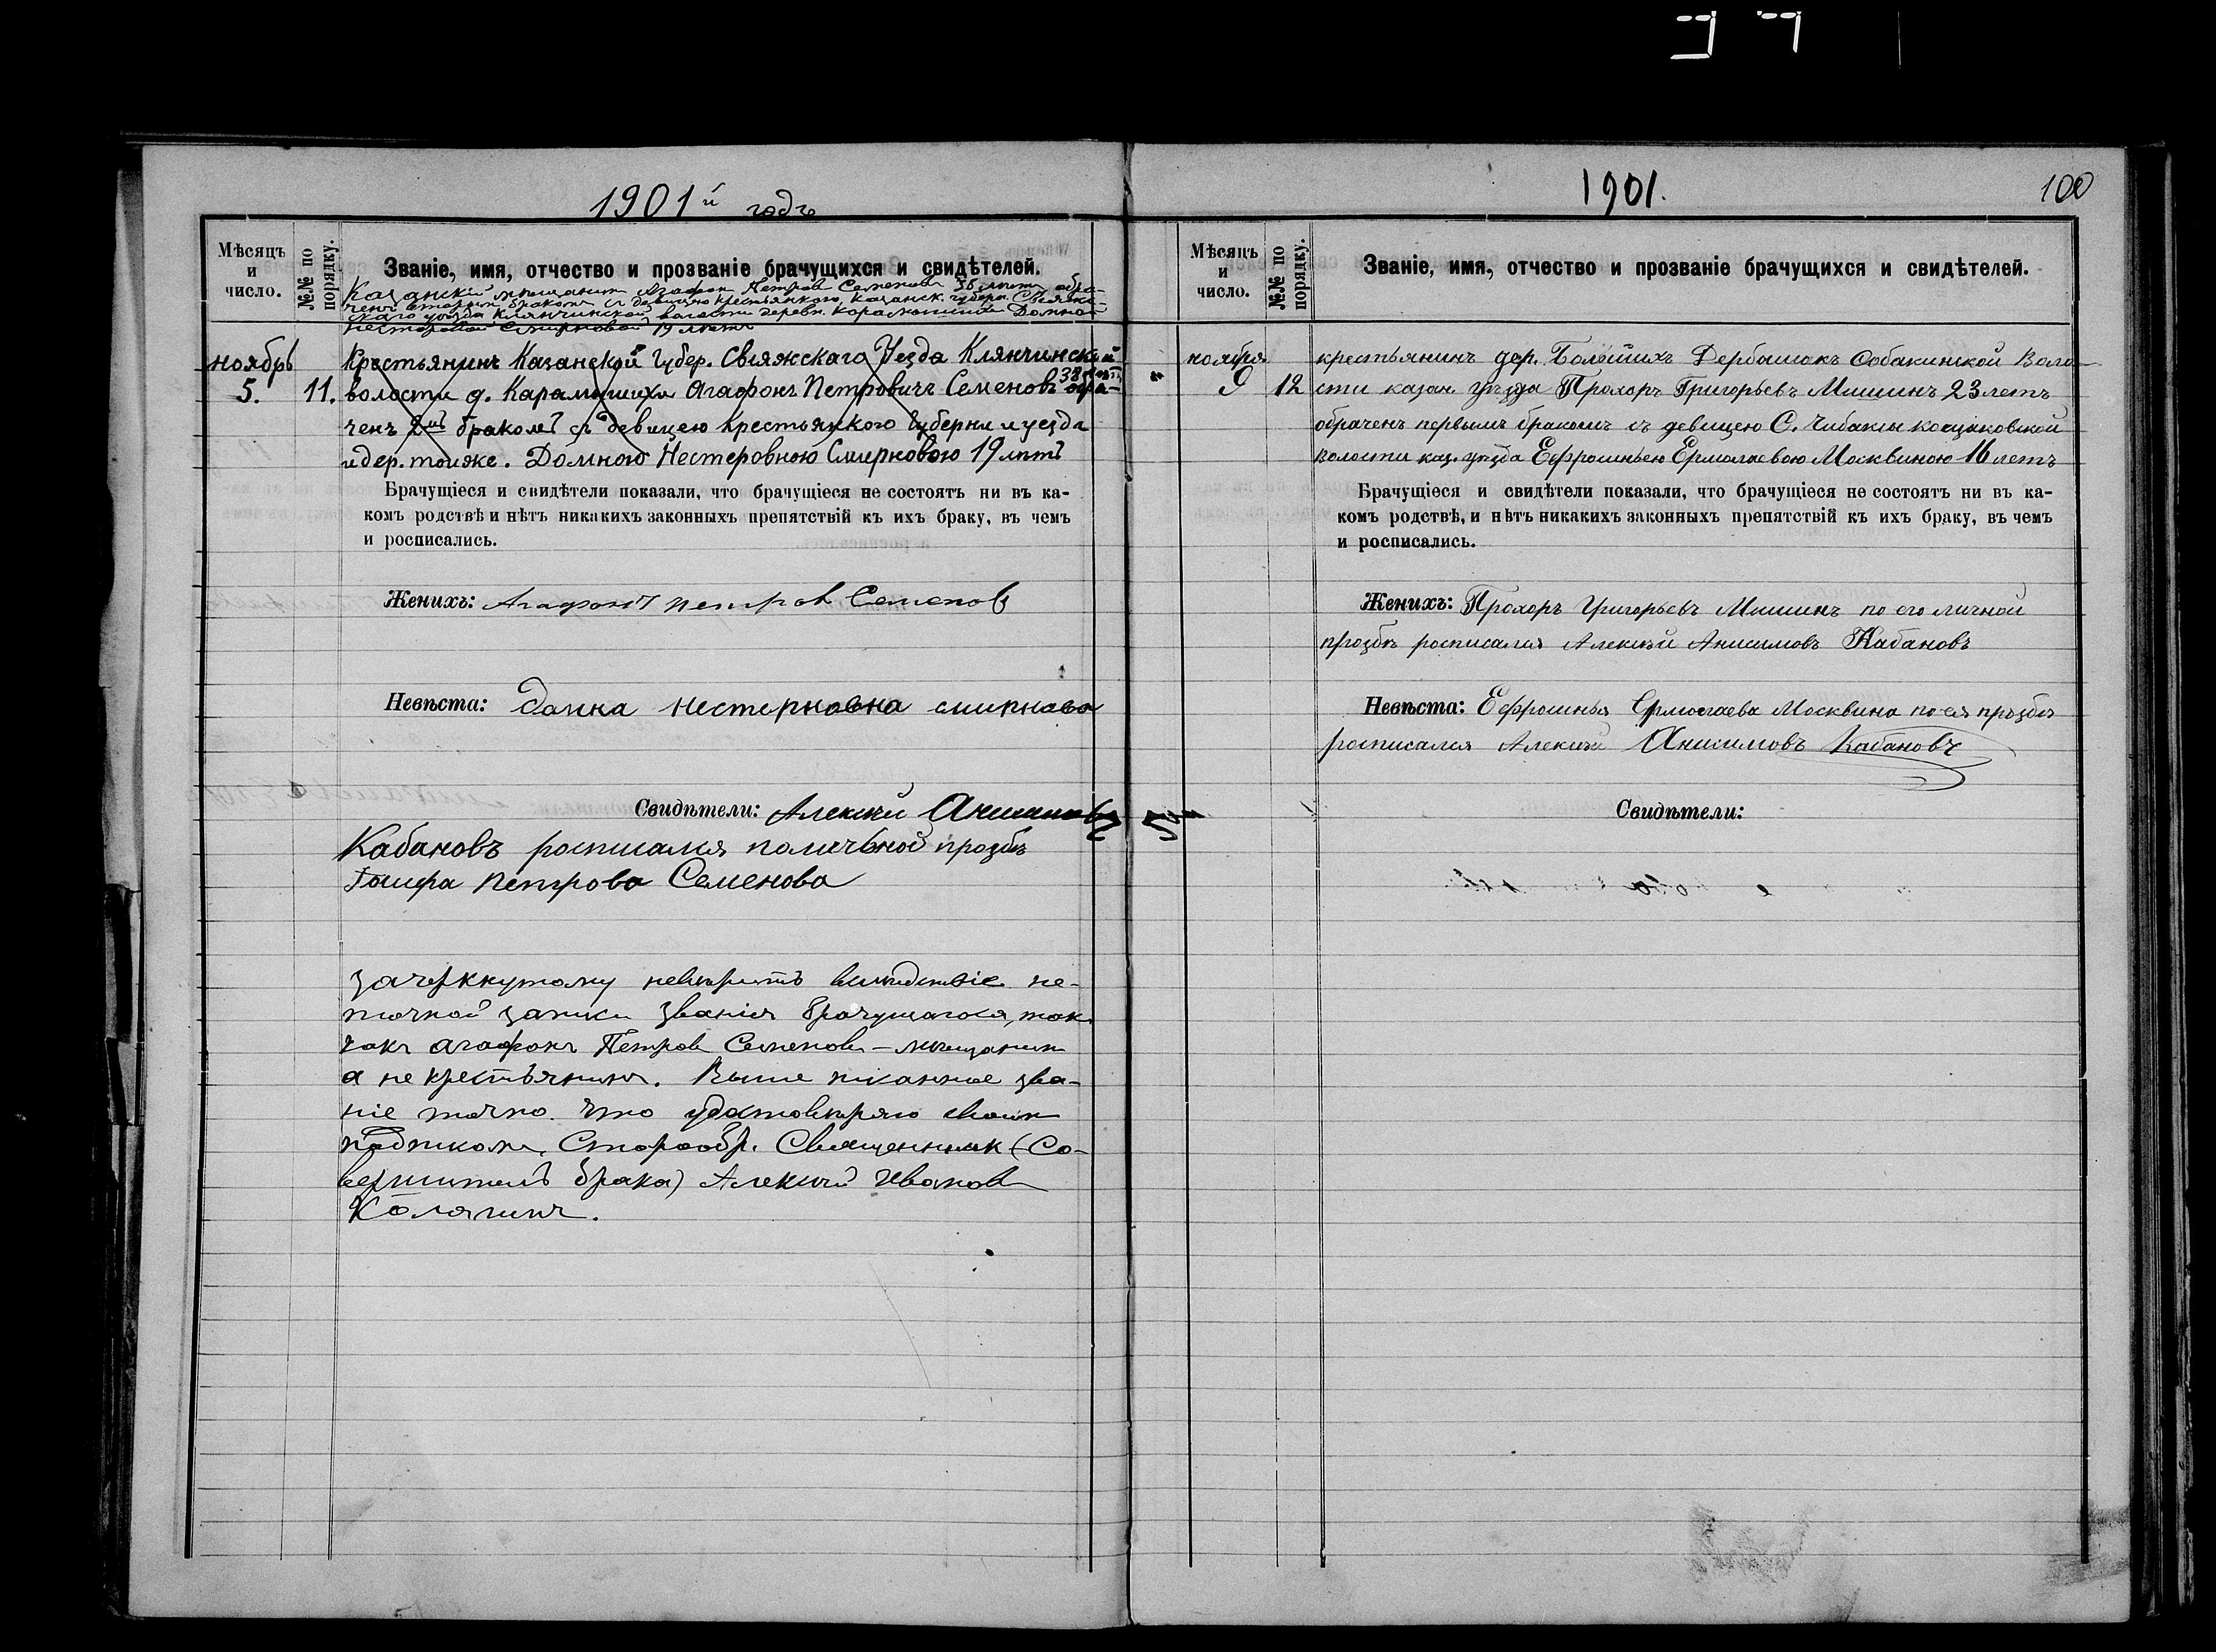 1901й годъ
Мѣсяцъ и число.
№№ по порядку.
Званіе, имя, отчество и прозваніе брачущихся и свидѣтелей.
Казанскій мѣщанинъ Агафон Петров Семеновъ 38 лѣтъ обра-
ченъ вторым браком съ девицею крестьянкою, Казанск. губерн. Свіяж-
скаго уѣзда Клянчинской волости дерев. Карамышихи Домной
Нестеровой Смирновой 19 лѣтъ
ноябрь
5.
11.
Крестьянинъ Казанской Губер. Свіяжскаго Уезда Клянчинской
волости д. Карамышихи Агафонъ Петровичъ Семеновъ 38 лѣтъ бра-
ченъ 2мъ бракомъ съ девицею крестьянкою Губерни и уезда
и дер. тоиже. Домною Нестеровною Смирновою 19 лѣтъ
Брачущіеся и свидѣтели показали, что брачущіеся не состоятъ ни въ ка-
комъ родствѣ и нѣтъ никакихъ законныхъ препятствій къ ихъ браку, въ чемъ
и росписались.
Женихъ: Агафонъ петров Семенов
Невѣста: Домна Нестерновна смирнова
Свидѣтели: Алексѣй Анисимовъ
Кабановъ росписался поличьной прозбѣ
петрова Семенова
зачеркнутому невѣрить вслѣдствіе не-
точной записи званія брачущагося, так
какъ агафонъ Петров Семеновъ – мѣщанин
а не крестьянинъ. Выше писанное зва-
ніе точно. Что удостовѣряю своим
подписомъ. Старообр. Священник (Со-
вершитель брака) Алексѣй Иванов
Калягинъ.
1901.
100
Мѣсяцъ и число.
№№ по порядку.
Званіе, имя, отчество и прозваніе брачущихся и свидѣтелей.
ноября
9
12
крестьянинъ дер. Большихъ Дербашакъ Собакинской Воло
сти казан. уѣзда Прохоръ Григорьевъ Мишинъ 23 летъ
обраченъ первымъ бракомъ съ девицею С. Чибаксы кощаковской
волости каз. уѣзда Ефросиньею Ермолаевою Москвиною 16 летъ
Брачущіеся и свидѣтели показали, что брачущіеся не состоятъ ни въ ка-
комъ родствѣ, и нѣтъ никакихъ законныхъ препятствій къ ихъ браку, въ чемъ
и росписались.
Женихъ: Прохоръ Григорьевъ Мишинъ по его личной
прозбѣ росписался Алексѣй Анисимовъ Кабановъ
Невѣста: Ефросинья Ермолаева Москвина по ея прозбѣ
росписался Алексѣй Анисимовъ Кабановъ
Свидѣтели: